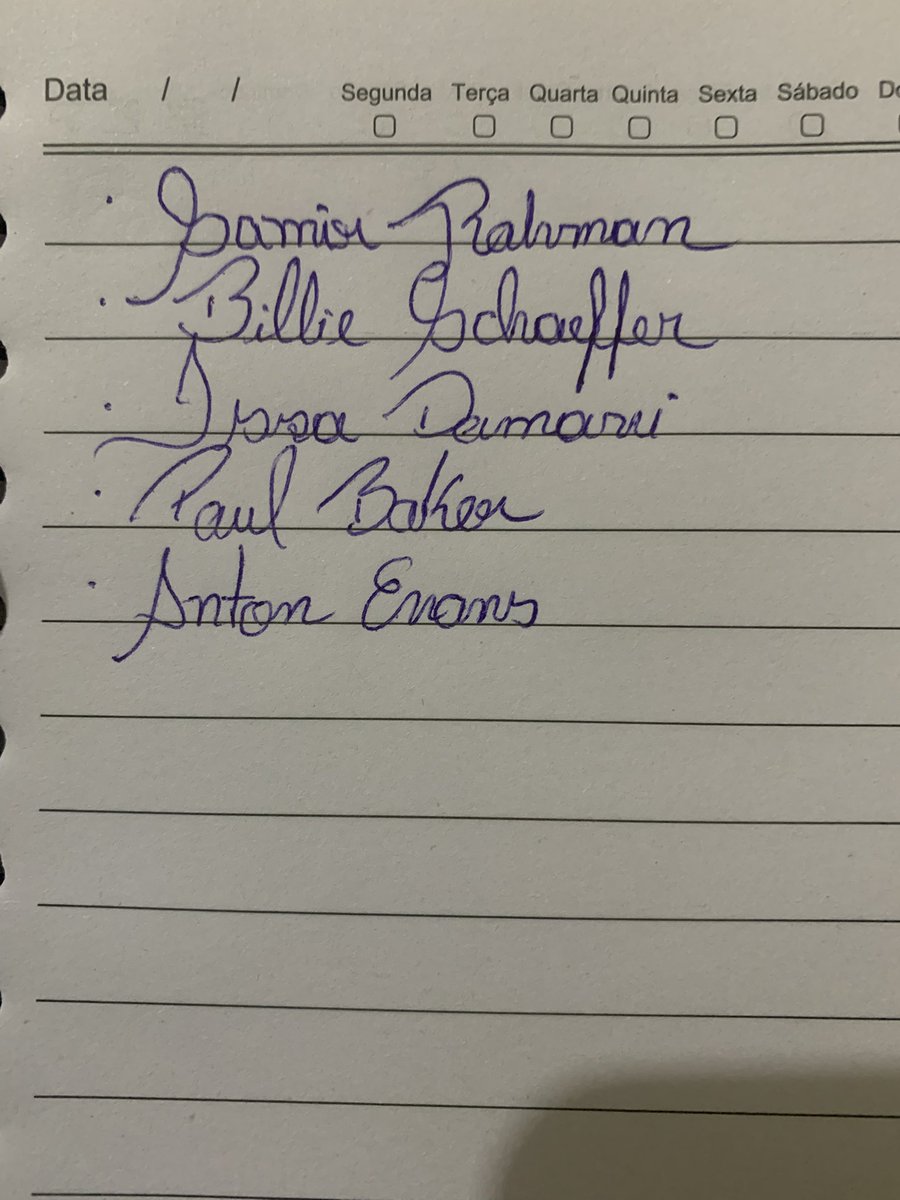 Data / / Segunda Terça Quarta Quinta Sexta Sábado Do
· Samir Rahman
· Billie Schaeffer
· Issa Damarui
· Paul Baker
· Anton Evans